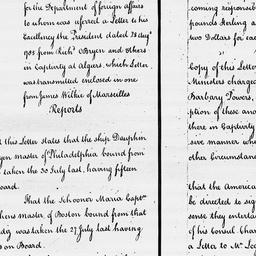 for the Department of foreign affairs
to whom was refered a Letter to his
Excellency the President dated 28 Augt
1785 from Richd OBryen and others
in Captivity at Algiers, which Letter
was transmitted enclosed in one
from James Wilkie of Marseilles
Reports
this Letter states that the ship Dauphin
master of Philadelphia bound from
taken the 30 July last, having fifteen
board.
That the Schooner Maria Captn
master of Boston bound from that
was taken the 27 July last having
on Board.
coming responsible
pounds Sterling a
two Dollars for each
Copy of this Letter
Ministers charged
Barbary Powers,
ption of these an
there in Captivity
sive manner wh
other Circumstan
that the America
be directed to sig
sense they enterta
of his Consul Cha
a Letter to Mr